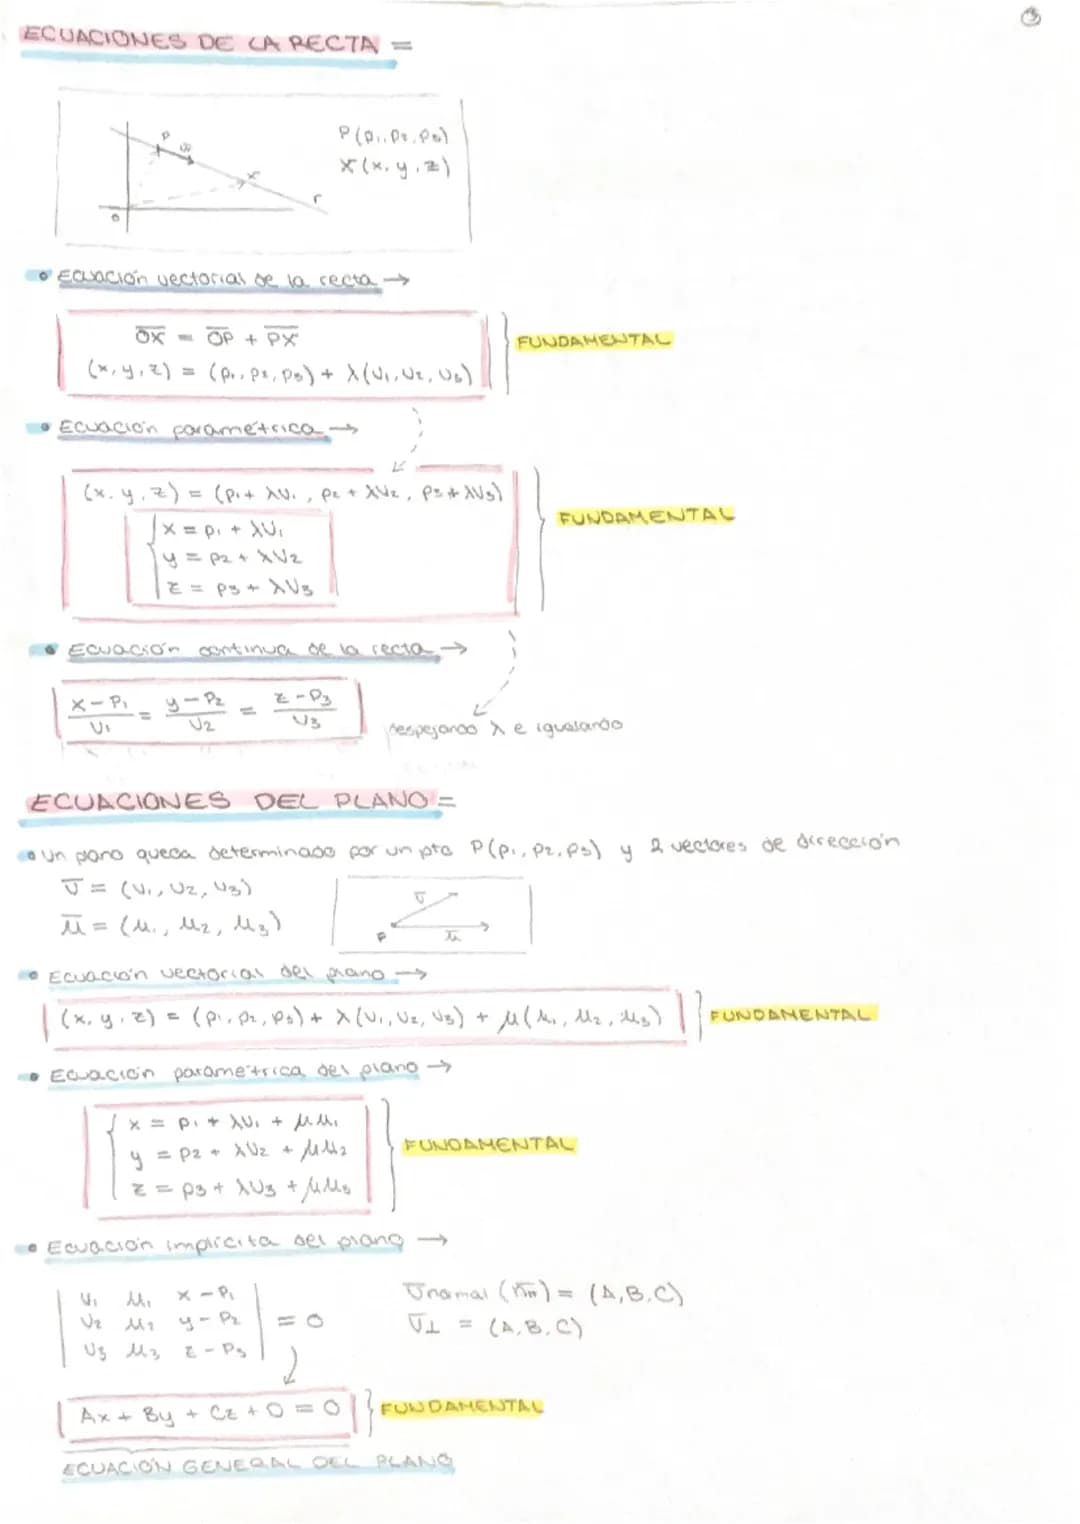 ③
ECUACIONES DE LA RECTA =
P
v̅
X
r
O
P(p₁, p₂, p₃)
X(x, y, z)
• Ecuación vectorial de la recta →
O̅X̅ = O̅P̅ + P̅X̅
(x, y, z) = (p₁, p₂, p₃) + λ(v₁, v₂, v₃)
FUNDAMENTAL
• Ecuación paramétrica →
(x, y, z) = (p₁ + λv₁, p₂ + λv₂, p₃ + λv₃)
x = p₁ + λv₁
y = p₂ + λv₂
z = p₃ + λv₃
FUNDAMENTAL
• Ecuación continua de la recta →
(x - p₁)/v₁ = (y - p₂)/v₂ = (z - p₃)/v₃
despejando λ e igualando
ECUACIONES DEL PLANO =
• Un plano queda determinado por un pto P(p₁, p₂, p₃) y 2 vectores de dirección
v̅ = (v₁, v₂, v₃)
μ̅ = (μ₁, μ₂, μ₃)
v̅
P
μ̅
• Ecuación vectorial del plano →
(x, y, z) = (p₁, p₂, p₃) + λ(v₁, v₂, v₃) + μ(μ₁, μ₂, μ₃)
FUNDAMENTAL
• Ecuación paramétrica del plano →
x = p₁ + λv₁ + μμ₁
y = p₂ + λv₂ + μμ₂
z = p₃ + λv₃ + μμ₃
FUNDAMENTAL
• Ecuación implícita del plano →
v₁ μ₁ x - p₁
v₂ μ₂ y - p₂ = 0
v₃ μ₃ z - p₃
v̅normal (n̅π) = (A, B, C)
v̅⊥ = (A, B, C)
Ax + By + Cz + D = 0
FUNDAMENTAL
ECUACIÓN GENERAL DEL PLANO